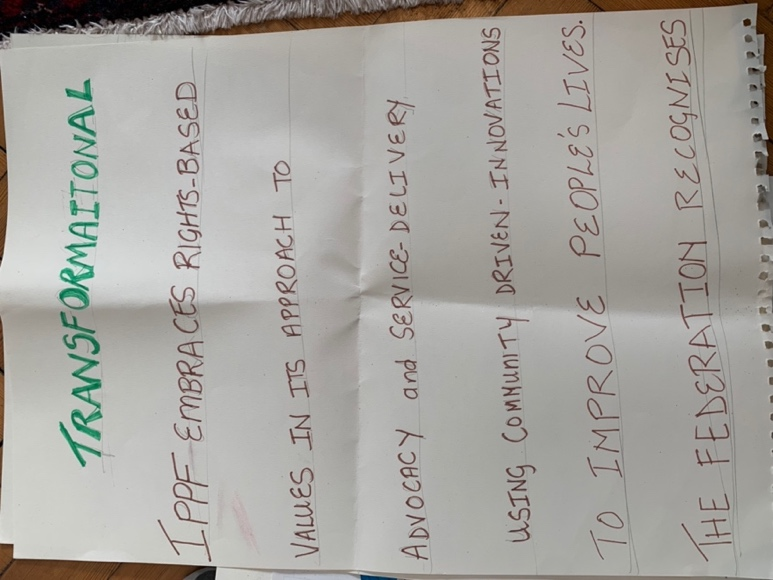 TRANSFORMAITONAL
IPPF EMBRACES RIGHTS-BASED
VALUES IN ITS APPROACH TO
ADVOCACY and SERVICE-DELIVERY.
USING COMMUNITY DRIVEN-INNOVATIONS
TO IMPROVE PEOPLE'S LIVES.
THE FEDERATION RECOGNISES